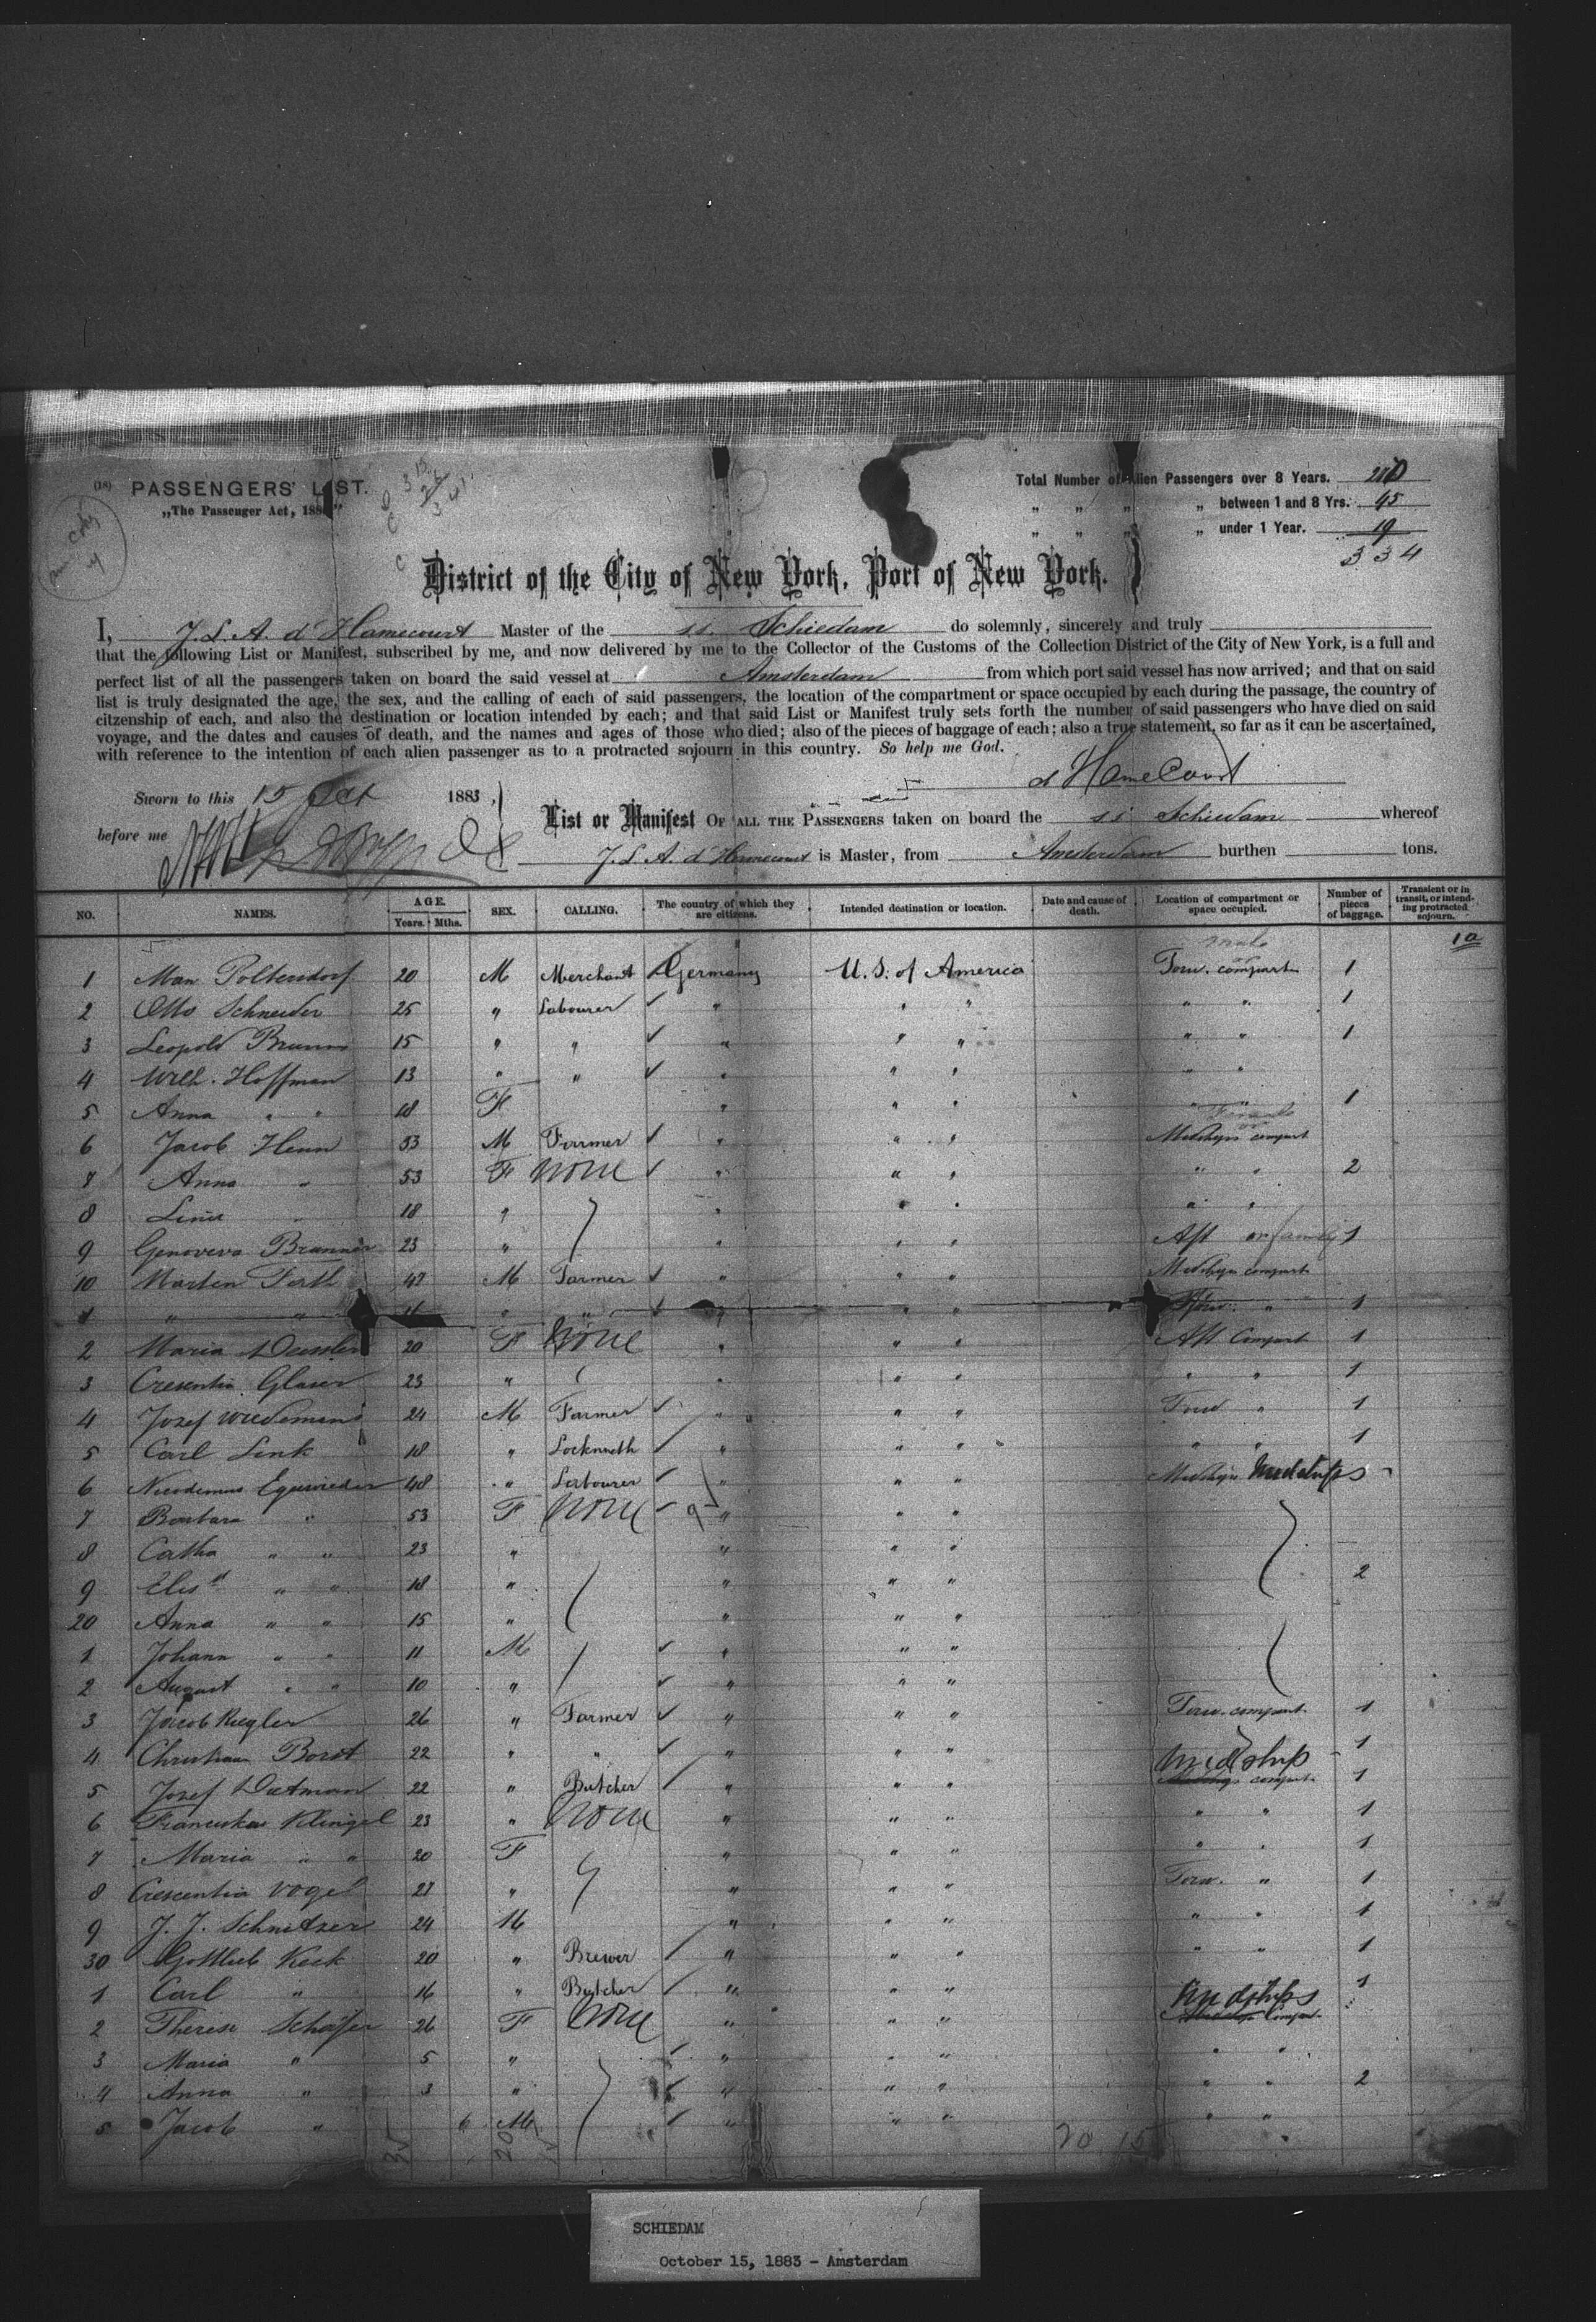 (18) PASSENGERS' LIST.
„The Passenger Act, 188 "
Total Number of Alien Passengers over 8 Years. 210
„ „ „ „ between 1 and 8 Yrs. 45
„ „ „ „ under 1 Year. 19
334
District of the City of New York, Port of New York.
I, J. L. A. d'Hamecourt Master of the s.s. Schiedam do solemnly, sincerely and truly
that the following List or Manifest, subscribed by me, and now delivered by me to the Collector of the Customs of the Collection District of the City of New York, is a full and
perfect list of all the passengers taken on board the said vessel at Amsterdam from which port said vessel has now arrived; and that on said
list is truly designated the age, the sex, and the calling of each of said passengers, the location of the compartment or space occupied by each during the passage, the country of
citzenship of each, and also the destination or location intended by each; and that said List or Manifest truly sets forth the number of said passengers who have died on said
voyage, and the dates and causes of death, and the names and ages of those who died; also of the pieces of baggage of each; also a true statement, so far as it can be ascertained,
with reference to the intention of each alien passenger as to a protracted sojourn in this country. So help me God.
d'Hamecourt
Sworn to this 15 Oct 1883,
before me
List or Manifest OF ALL THE PASSENGERS taken on board the s.s. Schiedam whereof
J. L. A. d'Hamecourt is Master, from Amsterdam burthen tons.
NO. NAMES. AGE. Years. Mths. SEX. CALLING. The country of which they are citizens. Intended destination or location. Date and cause of death. Location of compartment or space occupied. Number of pieces of baggage. Transient or in transit, or intending protracted sojourn.
10
1 Max Poltersdorf 20 M Merchant Germany U.S. of America Forw. compart 1
2 Otto Schneider 25 " Labourer " " " " " 1
3 Leopold 15 " " " " " " " 1
4 Wilh. Hoffman 13 " " " " " " "
5 Anna " " 18 F " " " " " 1
6 Jacob Henn 53 M Farmer " " " Midships compart
7 Anna " 53 F None " " " " " 2
8 Lina " 18 " " " " " "
9 Genoveva Brunner 23 " " " " Aft or family 1
10 Martin Forth 47 M Farmer " " " Midships compart
1 " " " " " " " Forw. " 1
2 Maria 20 F None " " " Aft Compart 1
3 Crescentia Glaser 23 " " " " " " 1
4 Josef Wiedemann 24 M Farmer " " " Forw " 1
5 Carl Link 18 " Locksmith " " " " " 1
6 Nicodemus 48 " Labourer " " " Midships Midships
7 Barbara " 53 F None " " "
8 Catha " " 23 " " " "
9 Elisth " " 18 " " " " 2
20 Anna " " 15 " " " "
1 Johann " " 11 M " " "
2 August " " 10 " " " "
3 Jacob Riegler 26 " Farmer " " " Forw. compart. 1
4 Christian Borst 22 " " " " " Midship 1
5 Josef Dietman 22 " Butcher " " " Midships compart. 1
6 Franciska Klingel 23 " None " " " " " 1
7 Maria " " 20 F " " " " " 1
8 Crescentia Vogel 27 " " " " Forw. " 1
9 J. J. Schnitzer 24 M " " " " " 1
30 Gottlieb Keck 20 " Brewer " " " " " 1
1 Carl " 16 " Butcher " " " 1
2 Therese Schäfer 26 F None " " " Midships compart.
3 Maria " 5 " " " " " "
4 Anna " 3 " " " " " " 2
5 Jacob " 6 M " " " " "
20 15
SCHIEDAM
October 15, 1883 - Amsterdam